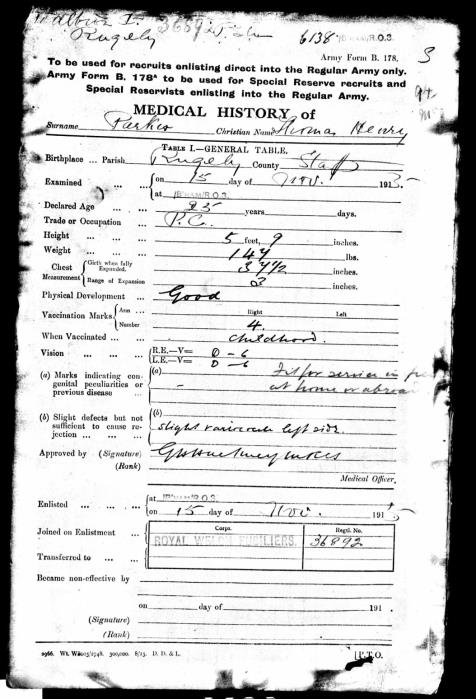 Rugely
6138 B'HAM/R.O.S.
Army Form B. 178.
3
To be used for recruits enlisting direct into the Regular Army only.
Army Form B. 178A to be used for Special Reserve recruits and
Special Reservists enlisting into the Regular Army.
MEDICAL HISTORY of
Surname Parkes Christian Name Thomas Henry
TABLE I.—GENERAL TABLE.
Birthplace ... Parish Rugely County Staff
Examined ... ... on 15 day of Nov. 1915
at B'HAM/R.O.S.
Declared Age ... ... 25 years days.
Trade or Occupation ... P.C.
Height ... ... ... 5 feet, 9 inches.
Weight ... ... ... 147 lbs.
Chest Measurement Girth when fully Expanded. 37 1/2 inches.
Range of Expansion 3 inches.
Physical Development ... Good
Vaccination Marks Arm ... Right Left
Number 4
When Vaccinated ... ... Childhood.
Vision ... ... ... R.E.—V= D - 6
L.E.—V= D - 6
(a) Marks indicating con- (a) Fit for service in
genital peculiarities or - at home or abroad
previous disease ...
(b) Slight defects but not (b)
sufficient to cause re- slight varicocele left side
jection ... ... ...
Approved by (Signature)
(Rank)
Medical Officer.
Enlisted ... ... ... at B'HAM/R.O.S.
on 15 day of Nov. 1915
Corps. Regtl. No.
Joined on Enlistment ... ROYAL WELSH FUSILIERS. 36892
Transferred to ... ...
Became non-effective by
on day of 191 .
(Signature)
(Rank)
[P.T.O.